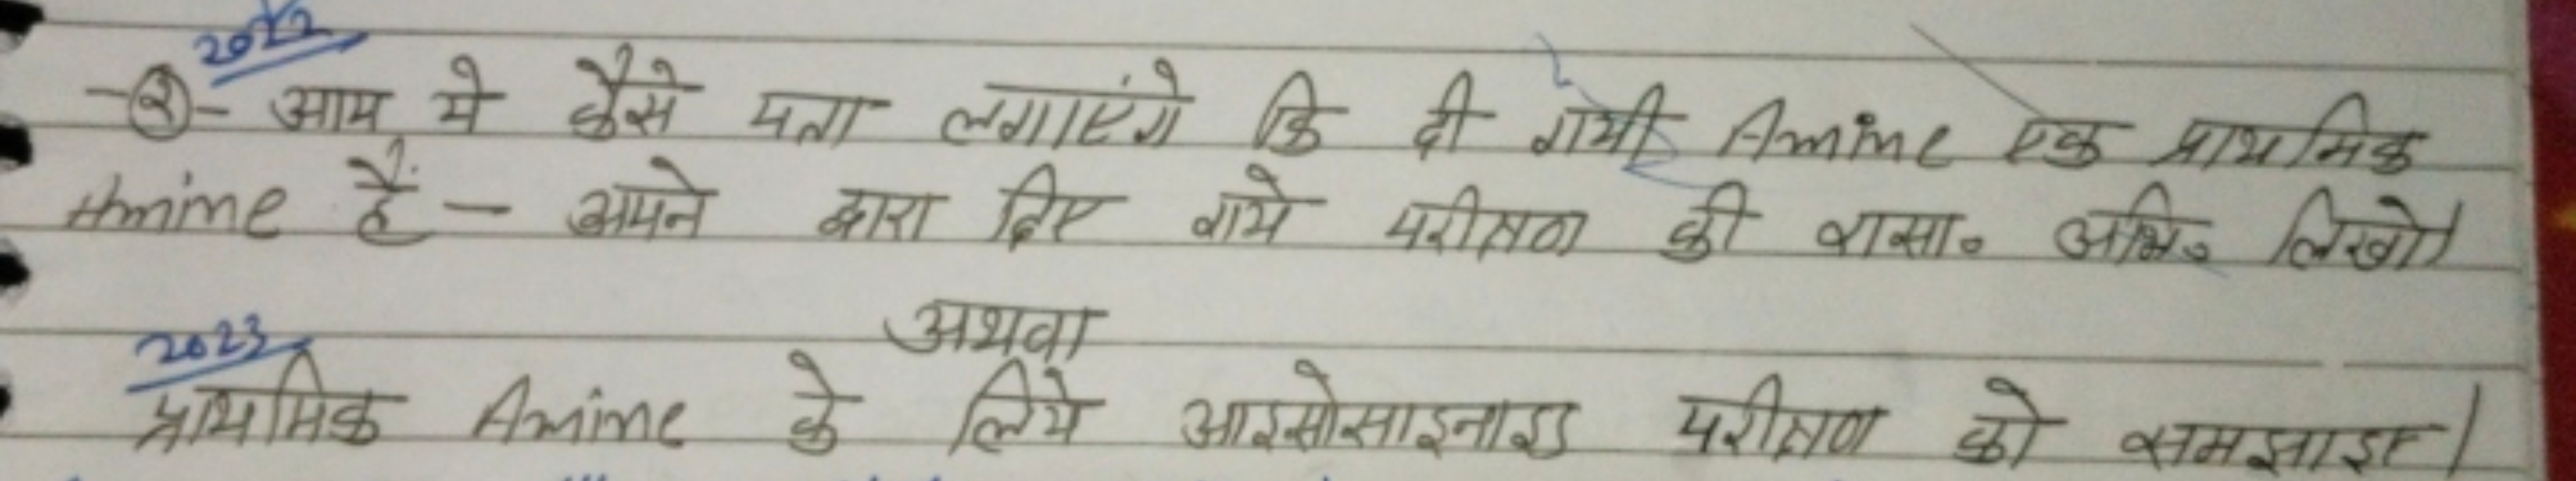 2022
-②- आप ये कैसे पता लगाएंगे कि दी गयी Amine एक प्राथमिक
Amine हैं:- अपने द्वारा दिए गये परीक्षण की रासा० अभि० लिखो।
अथवा
2023
प्राथमिक Amine के लिये आइसोसाइनाइड परीक्षण को समझाइए।